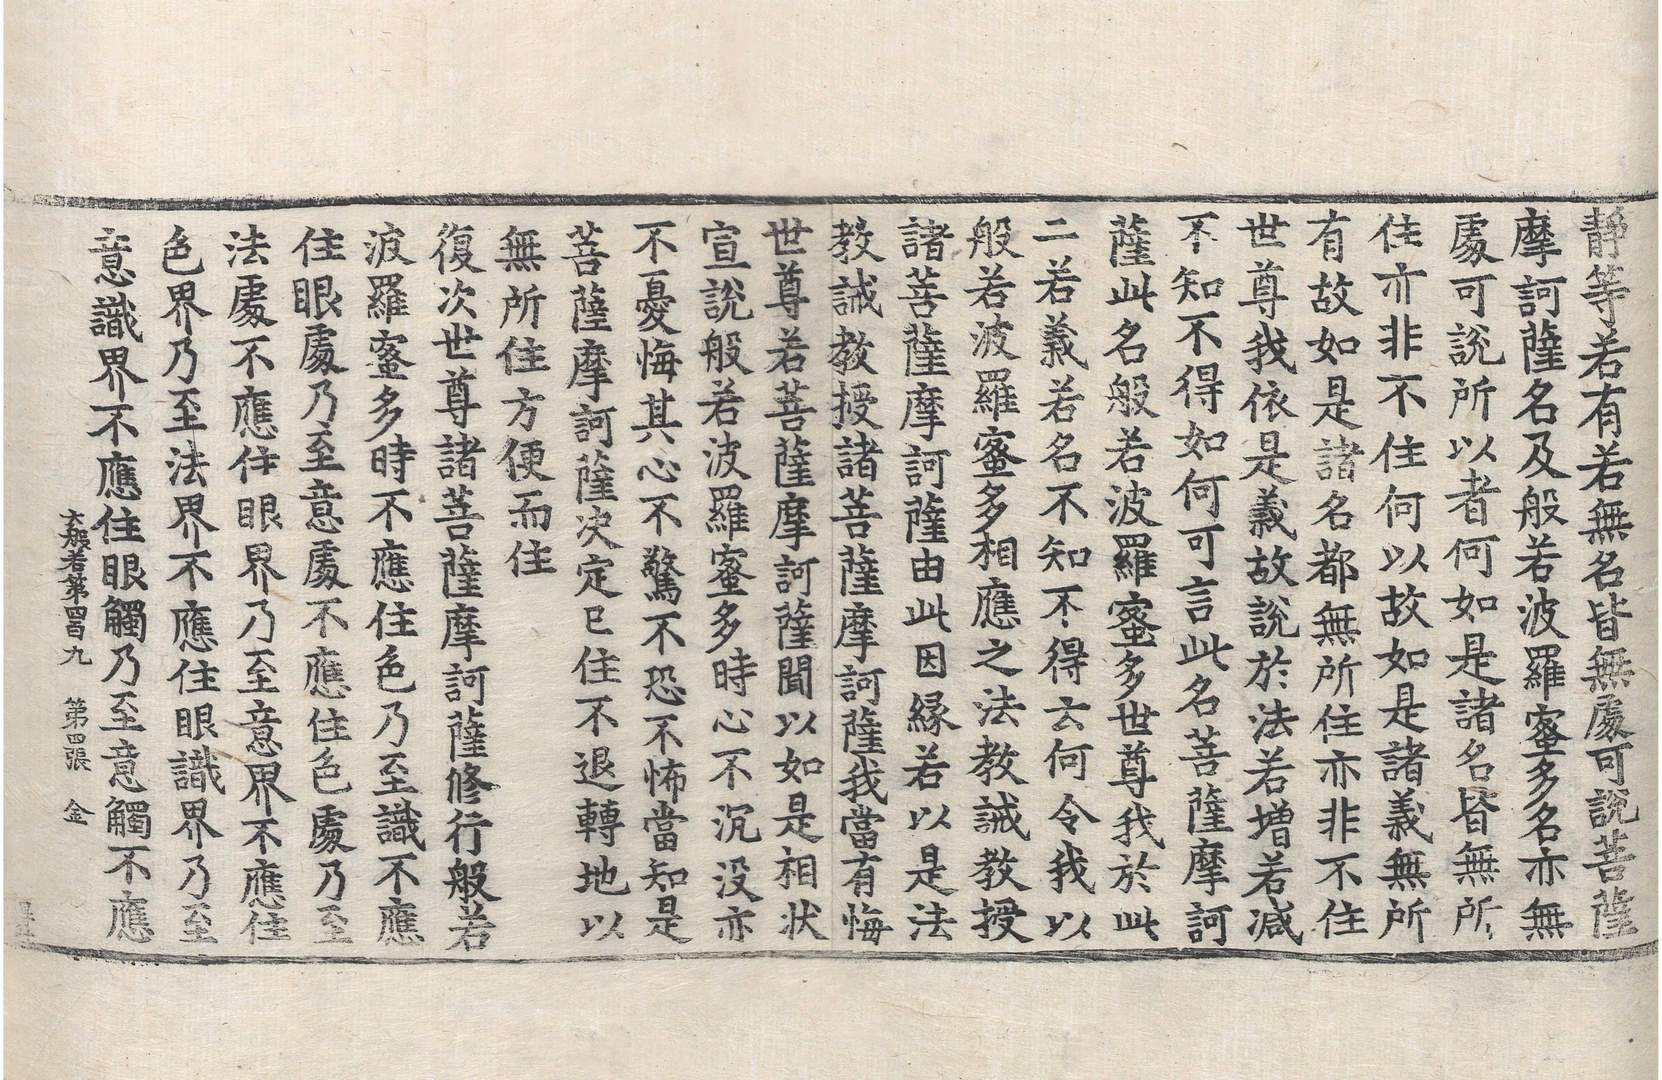 靜等若有若無名皆無處可說菩薩
摩訶薩名及般若波羅蜜多名亦無
處可說所以者何如是諸名皆無所
住亦非不住何以故如是諸義無所
有故如是諸名都無所住亦非不住
世尊我依是義故說於法若增若減
不知不得如何可言此名菩薩摩訶
薩此名般若波羅蜜多世尊我於此
二若義若名不知不得云何令我以
般若波羅蜜多相應之法教誡教授
諸菩薩摩訶薩由此因緣若以是法
教誡教授諸菩薩摩訶薩我當有悔
世尊若菩薩摩訶薩聞以如是相狀
宣說般若波羅蜜多時心不沉没亦
不憂悔其心不驚不恐不怖當知是
菩薩摩訶薩決定已住不退轉地以
無所住方便而住
復次世尊諸菩薩摩訶薩修行般若
波羅蜜多時不應住色乃至識不應
住眼處乃至意處不應住色處乃至
法處不應住眼界乃至意界不應住
色界乃至法界不應住眼識界乃至
意識界不應住眼觸乃至意觸不應
大般若第四百九 第四張 金